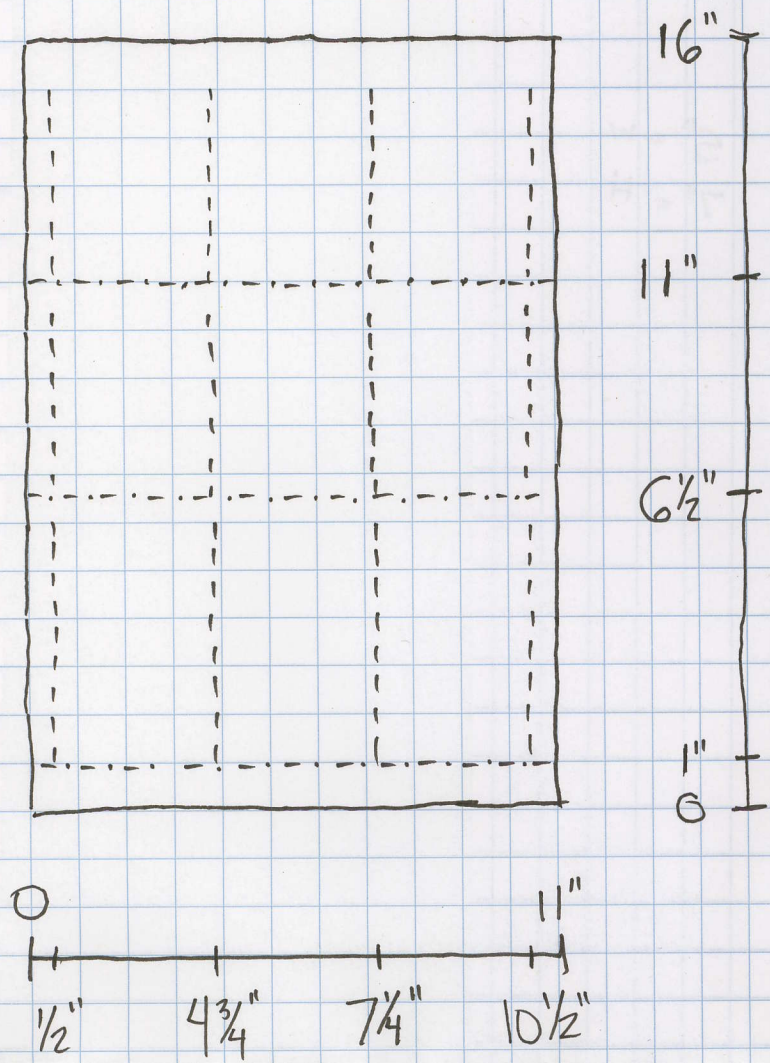 16"
11"
6 1/2"
1"
0
0 11"
1/2" 4 3/4" 7 1/4" 10 1/2"